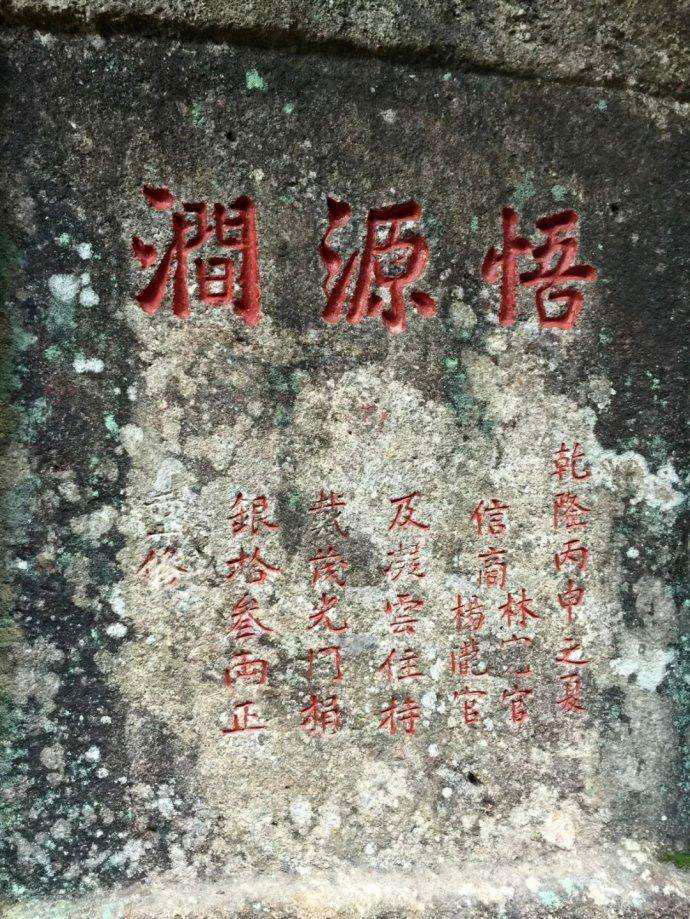 悟源澗
乾隆丙申之夏
信商林㝎官
楊瓏官
及凝雲住持
茂光門捐
銀拾叁両正
重修